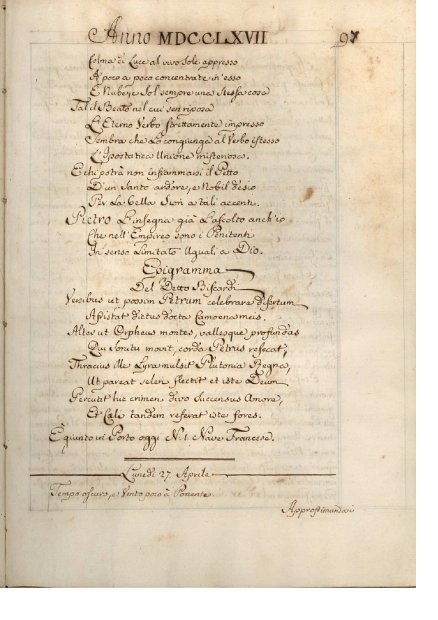 Anno MDCCLXVII 97
forma di Luce al vivo Sole appresso
A poco a poco concentrate in esso
E Nube, e Sol sempre una stessa cosa
Tal il Beato nel cui sen riposa
L'Eterno Verbo strettamente impresso
Sembra che Lo congiunga al Verbo istesso
L'Ipostatica Unione misteriosa.
E chi potrà non infiammarsi il Petto
D'un Santo ardore, e Nobil desio
Per La bella Sion a tali accenti.
Pietro L'insegna già L'ascolto anch'io
Che nell'Empireo sono i Penitenti
In senso Limitato Uguali a Dio.
Epigramma
Del Detto Biscardi
Versibus ut possim Petrum celebrare disertum
Adstat dictus docta Camoena meis.
Alter ut Orpheus montes, vallesque profundas
Qui Sonitu movit, corda Petrus refecat,
Thracius ille Lyra mulsit Plutonia Regna,
Ut pareat selen flectit et iste Deum
Percutit hic crimen divo Succensus Amore,
Et Cæli tandem referat iste fores.
È giunto in Porto oggi N. 1. Nave Francese.
Lunedì 27. Aprile
Tempo oscuro, e Vento poco à Ponente.
Approssimandosi